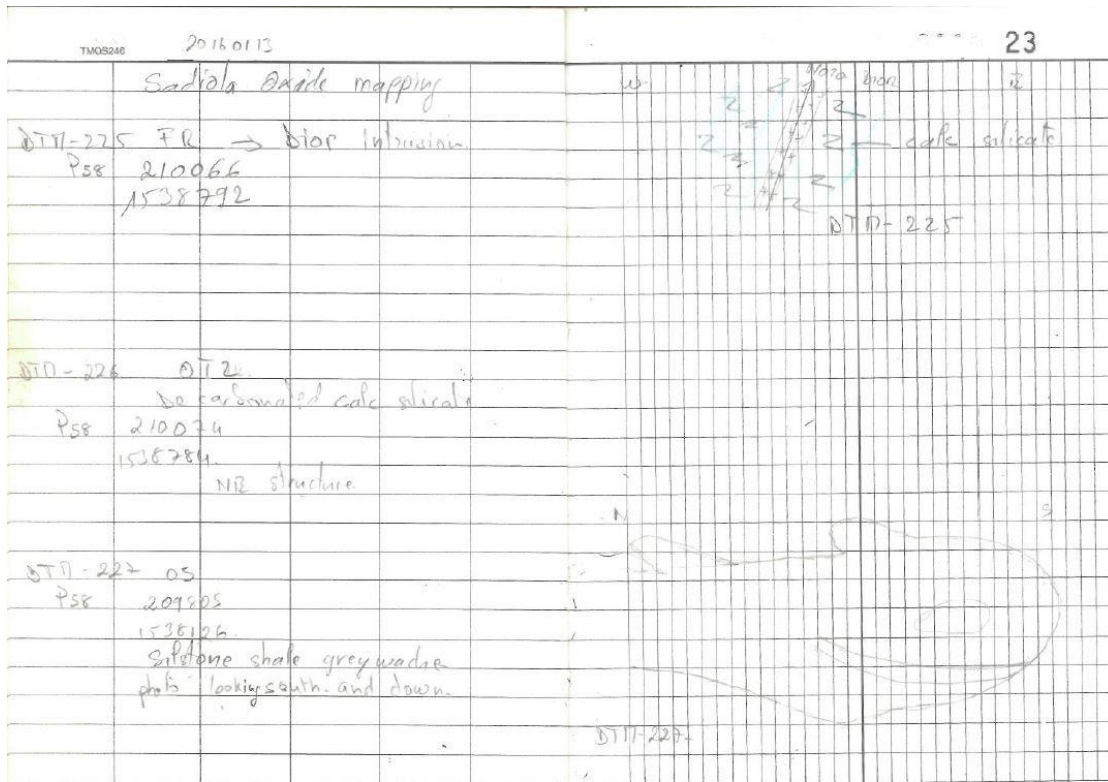 TMOS246 20160113
Sadiola Oxide mapping
DTM-225 FR → Dior intrusion
P58 210066
1538792
DTM-226 OT2
De carbonated calc silicate
P58 210074
1538784
NE structure
DTM-227 OS
P58 209805
1538126
Siltstone shale greywacke
photo looking south and down.
23
W E
calc silicate
DTM-225
N S
DTM-227